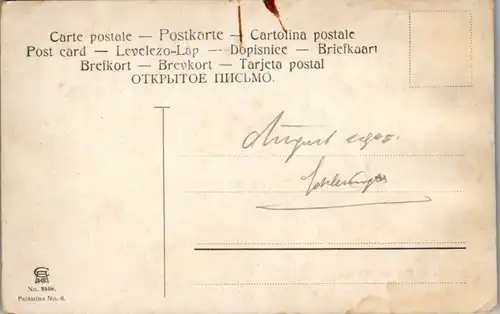 Carte postale — Postkarte — Cartolina postale
Post card — Levelezo-Láp — Dopisnice — Briefkaart
Brefkort — Brevkort — Tarjeta postal
ОТКРЫТОЕ ПИСЬМО.
August
No.
Palästina No. 6.